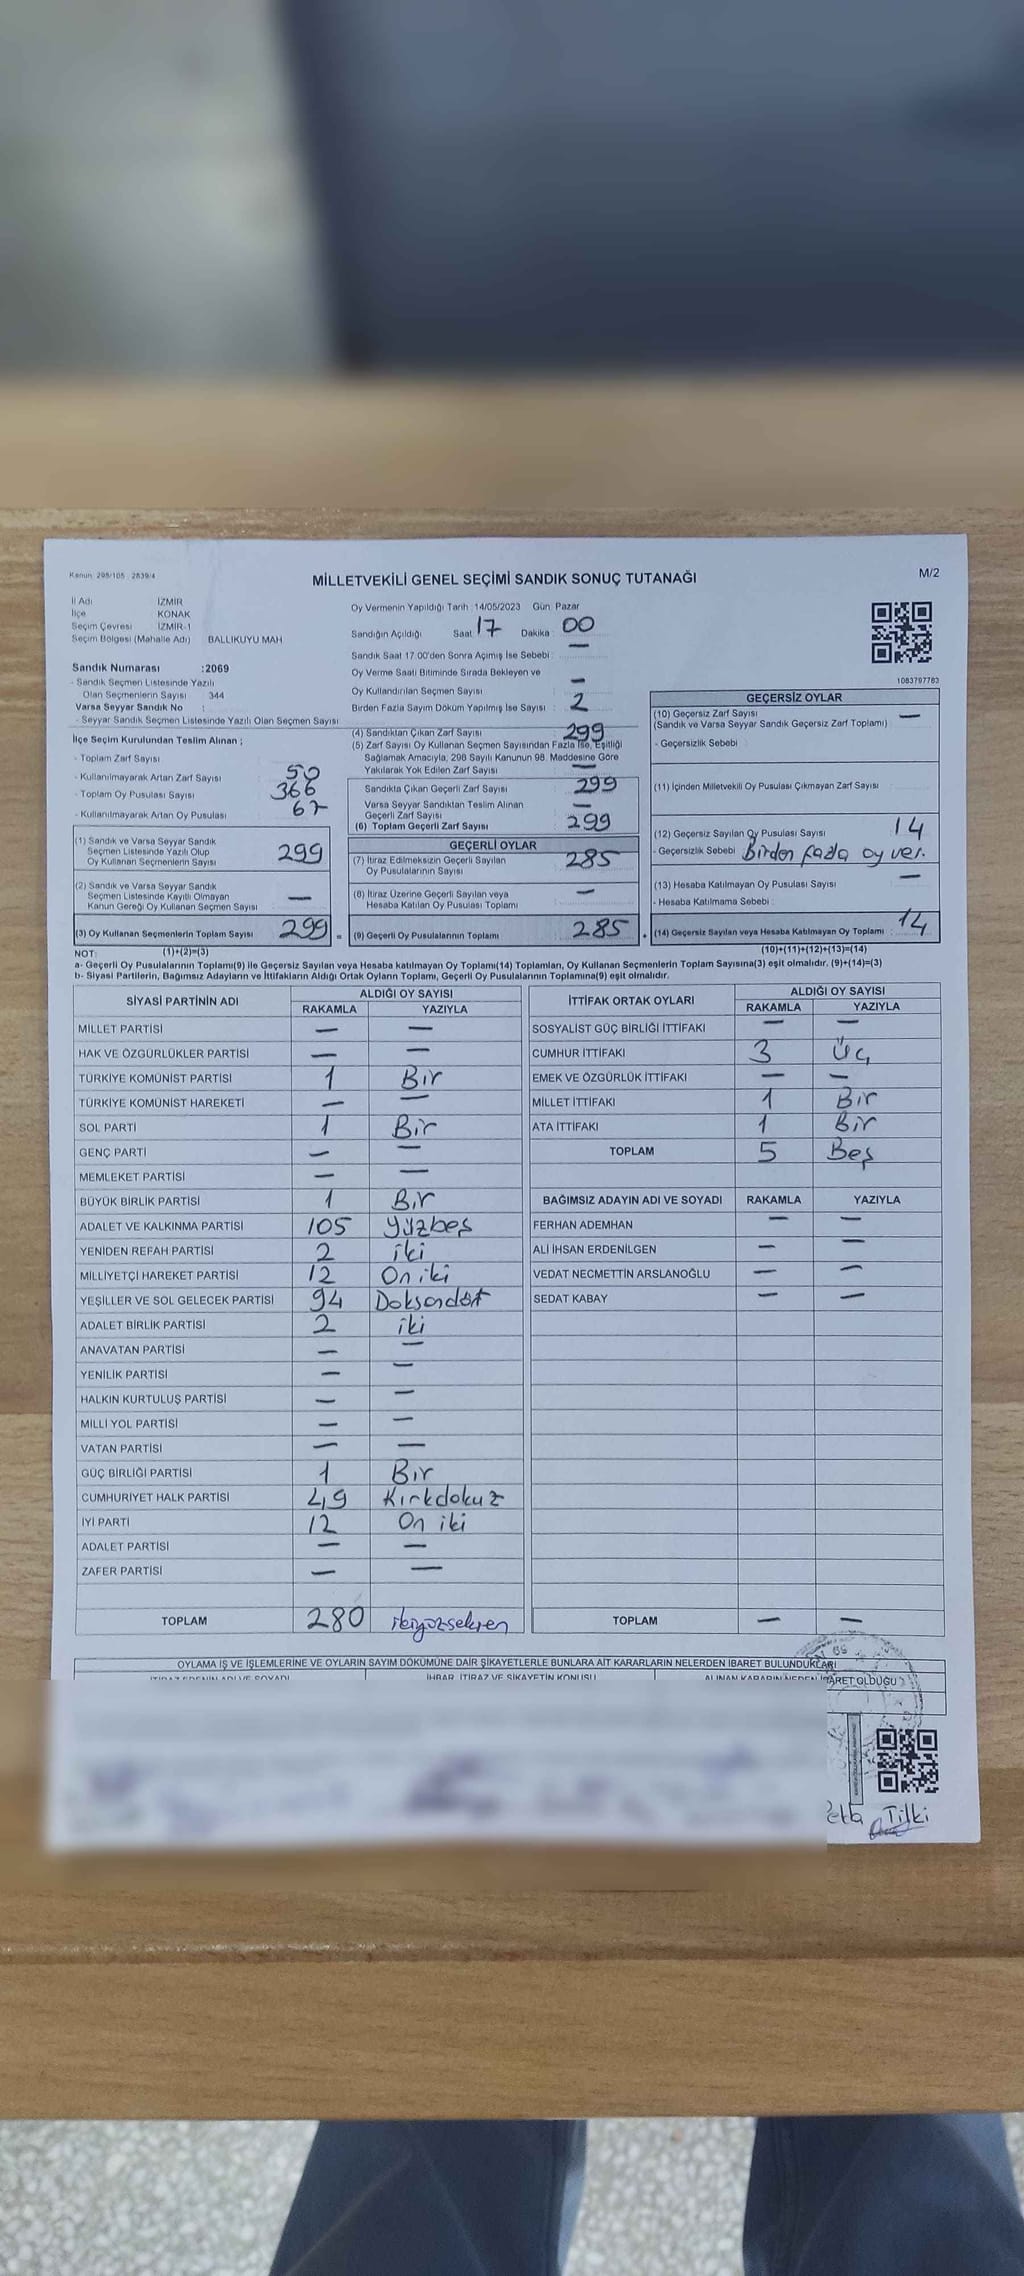 Kanun: 298/105 : 2839/4
MİLLETVEKİLİ GENEL SEÇİMİ SANDIK SONUÇ TUTANAĞI
M/2
İl Adı İZMİR
İlçe KONAK
Seçim Çevresi İZMİR-1
Seçim Bölgesi (Mahalle Adı) BALLIKUYU MAH
Sandık Numarası :2069
- Sandık Seçmen Listesinde Yazılı
Olan Seçmenlerin Sayısı : 344
Varsa Seyyar Sandık No :
- Seyyar Sandık Seçmen Listesinde Yazılı Olan Seçmen Sayısı
Oy Vermenin Yapıldığı Tarih :14/05/2023 Gün: Pazar
Sandığın Açıldığı Saat 17 Dakika : 00
Sandık Saat 17:00'den Sonra Açımış İse Sebebi : —
Oy Verme Saati Bitiminde Sırada Bekleyen ve
Oy Kullandırılan Seçmen Sayısı —
Birden Fazla Sayım Döküm Yapılmış İse Sayısı : 2
1083797783
İlçe Seçim Kurulundan Teslim Alınan ;
- Toplam Zarf Sayısı
- Kullanılmayarak Artan Zarf Sayısı 50
- Toplam Oy Pusulası Sayısı 366
- Kullanılmayarak Artan Oy Pusulası 67
(1) Sandık ve Varsa Seyyar Sandık
Seçmen Listesinde Yazılı Olup
Oy Kullanan Seçmenlerin Sayısı 299
(2) Sandık ve Varsa Seyyar Sandık
Seçmen Listesinde Kayıtlı Olmayan
Kanun Gereği Oy Kullanan Seçmen Sayısı —
(3) Oy Kullanan Seçmenlerin Toplam Sayısı 299 =
(4) Sandıktan Çıkan Zarf Sayısı 299
(5) Zarf Sayısı Oy Kullanan Seçmen Sayısından Fazla İse, Eşitliği
Sağlamak Amacıyla, 298 Sayılı Kanunun 98. Maddesine Göre
Yakılarak Yok Edilen Zarf Sayısı —
Sandıkta Çıkan Geçerli Zarf Sayısı 299
Varsa Seyyar Sandıktan Teslim Alınan
Geçerli Zarf Sayısı —
(6) Toplam Geçerli Zarf Sayısı 299
GEÇERLİ OYLAR
(7) İtiraz Edilmeksizin Geçerli Sayılan
Oy Pusulalarının Sayısı 285
(8) İtiraz Üzerine Geçerli Sayılan veya
Hesaba Katılan Oy Pusulası Toplamı —
(9) Geçerli Oy Pusulalarının Toplamı 285 +
GEÇERSİZ OYLAR
(10) Geçersiz Zarf Sayısı —
(Sandık ve Varsa Seyyar Sandık Geçersiz Zarf Toplamı)
- Geçersizlik Sebebi
(11) İçinden Milletvekili Oy Pusulası Çıkmayan Zarf Sayısı
(12) Geçersiz Sayılan Oy Pusulası Sayısı 14
- Geçersizlik Sebebi Birden fazla oy ver.
(13) Hesaba Katılmayan Oy Pusulası Sayısı —
- Hesaba Katılmama Sebebi :
(14) Geçersiz Sayılan veya Hesaba Katılmayan Oy Toplamı 14
NOT: (1)+(2)=(3) (10)+(11)+(12)+(13)=(14)
a- Geçerli Oy Pusulalarının Toplamı(9) ile Geçersiz Sayılan veya Hesaba katılmayan Oy Toplamı(14) Toplamları, Oy Kullanan Seçmenlerin Toplam Sayısına(3) eşit olmalıdır. (9)+(14)=(3)
b- Siyasi Partilerin, Bağımsız Adayların ve İttifakların Aldığı Ortak Oyların Toplamı, Geçerli Oy Pusulalarının Toplamına(9) eşit olmalıdır.
SİYASİ PARTİNİN ADI ALDIĞI OY SAYISI
RAKAMLA YAZIYLA
MİLLET PARTİSİ — —
HAK VE ÖZGÜRLÜKLER PARTİSİ — —
TÜRKİYE KOMÜNİST PARTİSİ 1 Bir
TÜRKİYE KOMÜNİST HAREKETİ — —
SOL PARTİ 1 Bir
GENÇ PARTİ — —
MEMLEKET PARTİSİ — —
BÜYÜK BİRLİK PARTİSİ 1 Bir
ADALET VE KALKINMA PARTİSİ 105 Yüzbeş
YENİDEN REFAH PARTİSİ 2 iki
MİLLİYETÇİ HAREKET PARTİSİ 12 On iki
YEŞİLLER VE SOL GELECEK PARTİSİ 94 Doksandört
ADALET BİRLİK PARTİSİ 2 iki
ANAVATAN PARTİSİ — —
YENİLİK PARTİSİ — —
HALKIN KURTULUŞ PARTİSİ — —
MİLLİ YOL PARTİSİ — —
VATAN PARTİSİ — —
GÜÇ BİRLİĞİ PARTİSİ 1 Bir
CUMHURİYET HALK PARTİSİ 49 Kırkdokuz
İYİ PARTİ 12 On iki
ADALET PARTİSİ — —
ZAFER PARTİSİ — —
TOPLAM 280 ikiyüzseksen
İTTİFAK ORTAK OYLARI ALDIĞI OY SAYISI
RAKAMLA YAZIYLA
SOSYALİST GÜÇ BİRLİĞİ İTTİFAKI — —
CUMHUR İTTİFAKI 3 Üç
EMEK VE ÖZGÜRLÜK İTTİFAKI — —
MİLLET İTTİFAKI 1 Bir
ATA İTTİFAKI 1 Bir
TOPLAM 5 Beş
BAĞIMSIZ ADAYIN ADI VE SOYADI RAKAMLA YAZIYLA
FERHAN ADEMHAN — —
ALİ İHSAN ERDENİLGEN — —
VEDAT NECMETTİN ARSLANOĞLU — —
SEDAT KABAY — —
TOPLAM — —
OYLAMA İŞ VE İŞLEMLERİNE VE OYLARIN SAYIM DÖKÜMÜNE DAİR ŞİKAYETLERLE BUNLARA AİT KARARLARIN NELERDEN İBARET BULUNDUKLARI
İTİRAZ EDENİN ADI VE SOYADI İHBAR, İTİRAZ VE ŞİKAYETİN KONUSU ALINAN KARARIN NEDEN İBARET OLDUĞU
Tilki